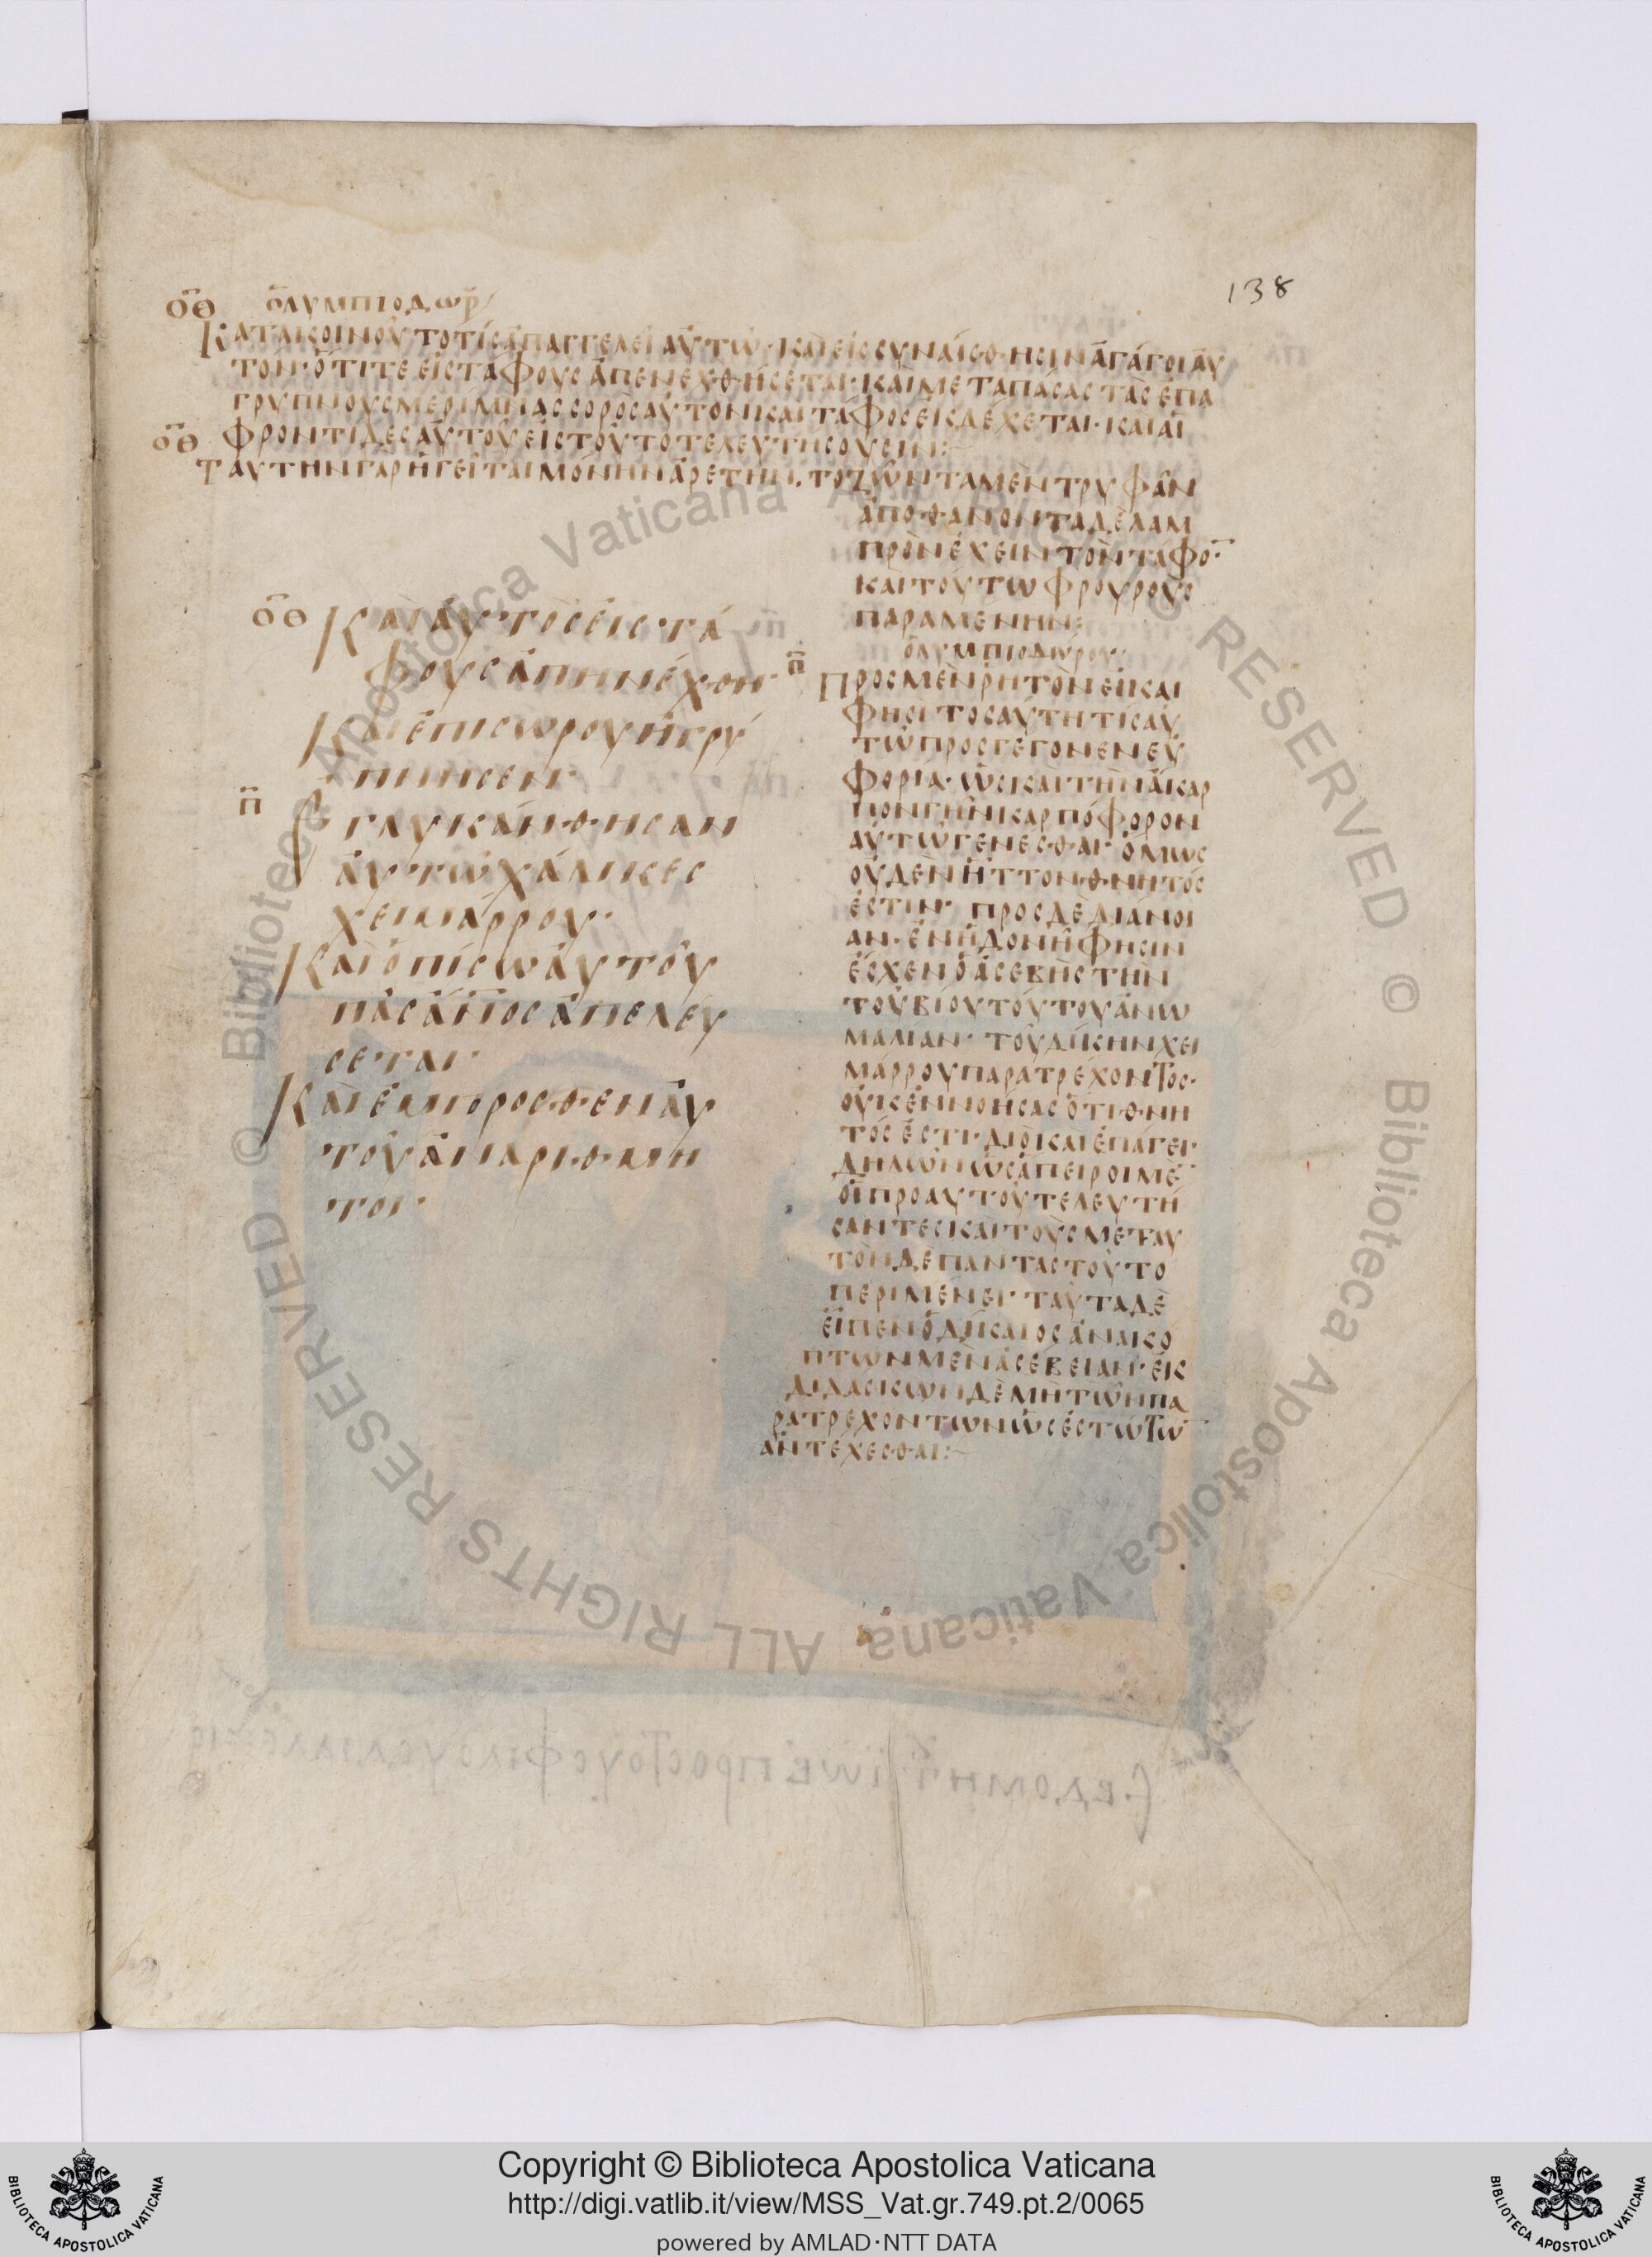 138
οθ ὀλυμπιοδώρ
Κατακοινοῦ τὸ τίς ἀπαγγελεῖ αὐτῷ· καὶ εἰς συναίσθησιν ἀγάγοι αὐ
τὸν· ὅτι τε εἰς τάφους ἀπενεχθήσεται· καὶ μετὰ πάσας τὰς ἐπα
γρύπνους μερίμνας σορὸς αὐτὸν καὶ τάφος εἰσδέχεται· καὶ αἱ
οθ φροντίδες αὐτοῦ εἰς τοῦτο τελευτήσουσιν:
ταύτην γὰρ ἡγεῖται μόνην ἀρετήν. τὸ ζῶντα μὲν τρυφᾶν
ἀποθανόντα δὲ λαμ
πρὸν ἔχειν τὸν τάφο
καὶ τούτω φρουροὺς
παραμένην:
οθ Καὶ αὐτὸς εἰς τά
φους ἀπηνέχθη·
Καὶ ἐπὶ σωροῦ ἠγρύ
πνησεν·
π Ἐγλυκάνθησαν
αὐτῷ χάλικες
χειμάρρου·
Καὶ ὀπίσω αὐτοῦ
πᾶς ἄνος ἀπελεύ
σεται·
Καὶ ἔμπροσθεν αὐ
τοῦ ἀναρίθμη
τοι·
ὀλυμπιοδώρου
π Πρὸς μὲν ῥητὸν εἰ καὶ
φησὶ τοσαύτη τίς αὐ
τῷ προσγέγονεν εὐ
φορία· ὡς καὶ τὴν ἄκαρ
πον γῆν καρποφόρον
αὐτῷ γενέσθαι· ὅμως
οὐδὲν ἧττον θνητός
ἐστιν· πρὸς δὲ διάνοι
αν· ἐν ἡδονῇ φησὶν
ἔσχεν ὁ ἀσεβὴς τὴν
τοῦ βίου τούτου ἀνω
μαλίαν· τοῦ δίκην χει
μάρρου παρατρέχοντος·
οὐκ ἐννοήσας ὅτι θνη
τός ἐστι· διὸ καὶ ἐπάγει·
δηλῶν ὡς ἄπειροι μὲ
οἱ πρὸ αὐτοῦ τελευτή
σαντες καὶ τοὺς μετ αυ
τὸν δὲ πάντας τοῦτο
περιμένει· ταῦτα δὲ
εἶπεν ὁ δίκαιος ἀνακό
πτων μὲν ἀσέβειαν· ἐκ
διδάσκων δὲ μὴ τῶν πα
ρατρεχόντων ὡς ἑστώτω
ἀντέχεσθαι:
Copyright © Biblioteca Apostolica Vaticana
http://digi.vatlib.it/view/MSS_Vat.gr.749.pt.2/0065
powered by AMLAD·NTT DATA
BIBLIOTECA APOSTOLICA VATICANA
BIBLIOTECA APOSTOLICA VATICANA
© Biblioteca Apostolica Vaticana ALL RIGHTS RESERVED © Biblioteca Apostolica Vaticana ALL RIGHTS RESERVED